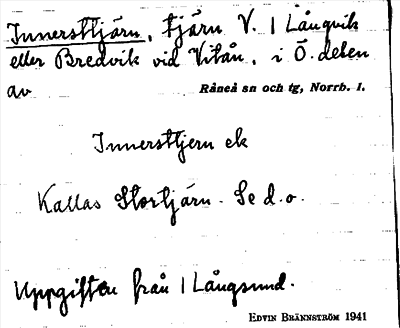 Innersttjärn, tjärn V. I Långvik
eller Bredvik vid Vitån, i Ö. delen
av Råneå sn och tg, Norrb. l.
Innersttjern ek
Kallas Stortjärn. Se d.o.
Uppgiften från I Långsund.
EDVIN BRÄNNSTRÖM 1941